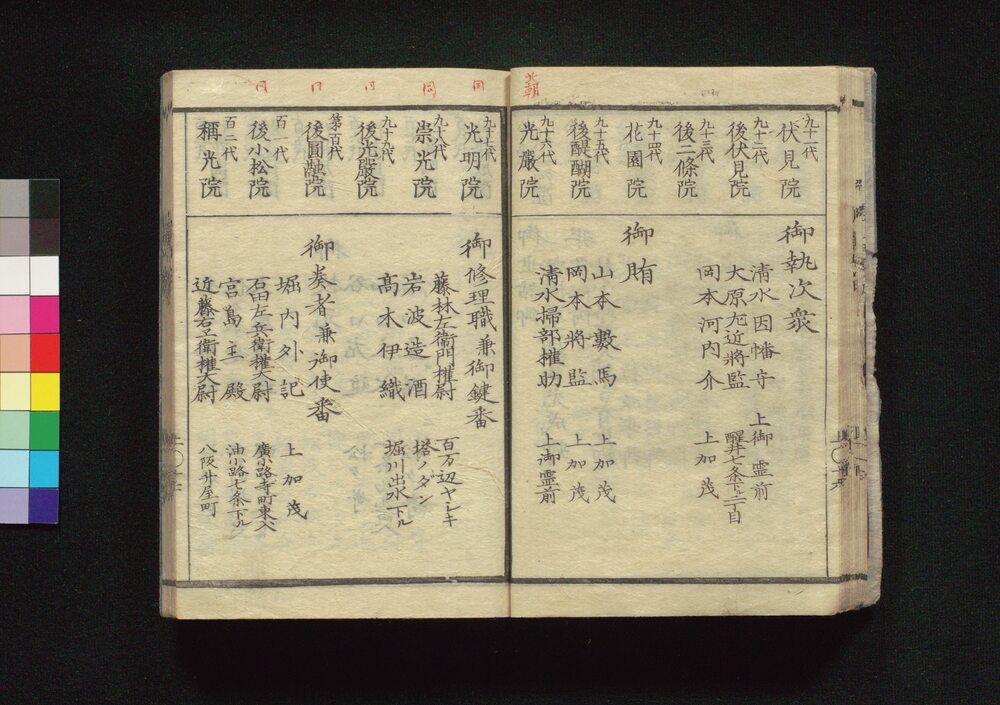 北朝
九十一代
伏見院
九十二代
後伏見院
九十三代
後二條院
九十四代
花園院
九十五代
後醍醐院
九十六代
光嚴院
御執次衆
清水因幡守 上御霊前
大原左近將監 醒井七条下ル二丁目
岡本河内介 上加茂
御賄
山本數馬 上加茂
岡本將監 上加茂
清水掃部權助 上御霊前
同
同
同
同
同
九十七代
光明院
九十八代
崇光院
九十九代
後光嚴院
第百代
後圓融院
百一代
後小松院
百二代
稱光院
御修理職兼御鍵番
藤林左衛門權尉 百万辺ヤシキ
岩波造酒 塔ノダン
髙木伊織 堀川出水下ル
御奏者兼御使番
堀内外記 上加茂
石田左兵衛權大尉 廣小路寺町東入
宮島主殿 油小路七条下ル
近藤右衛權大尉 八阪升屋町